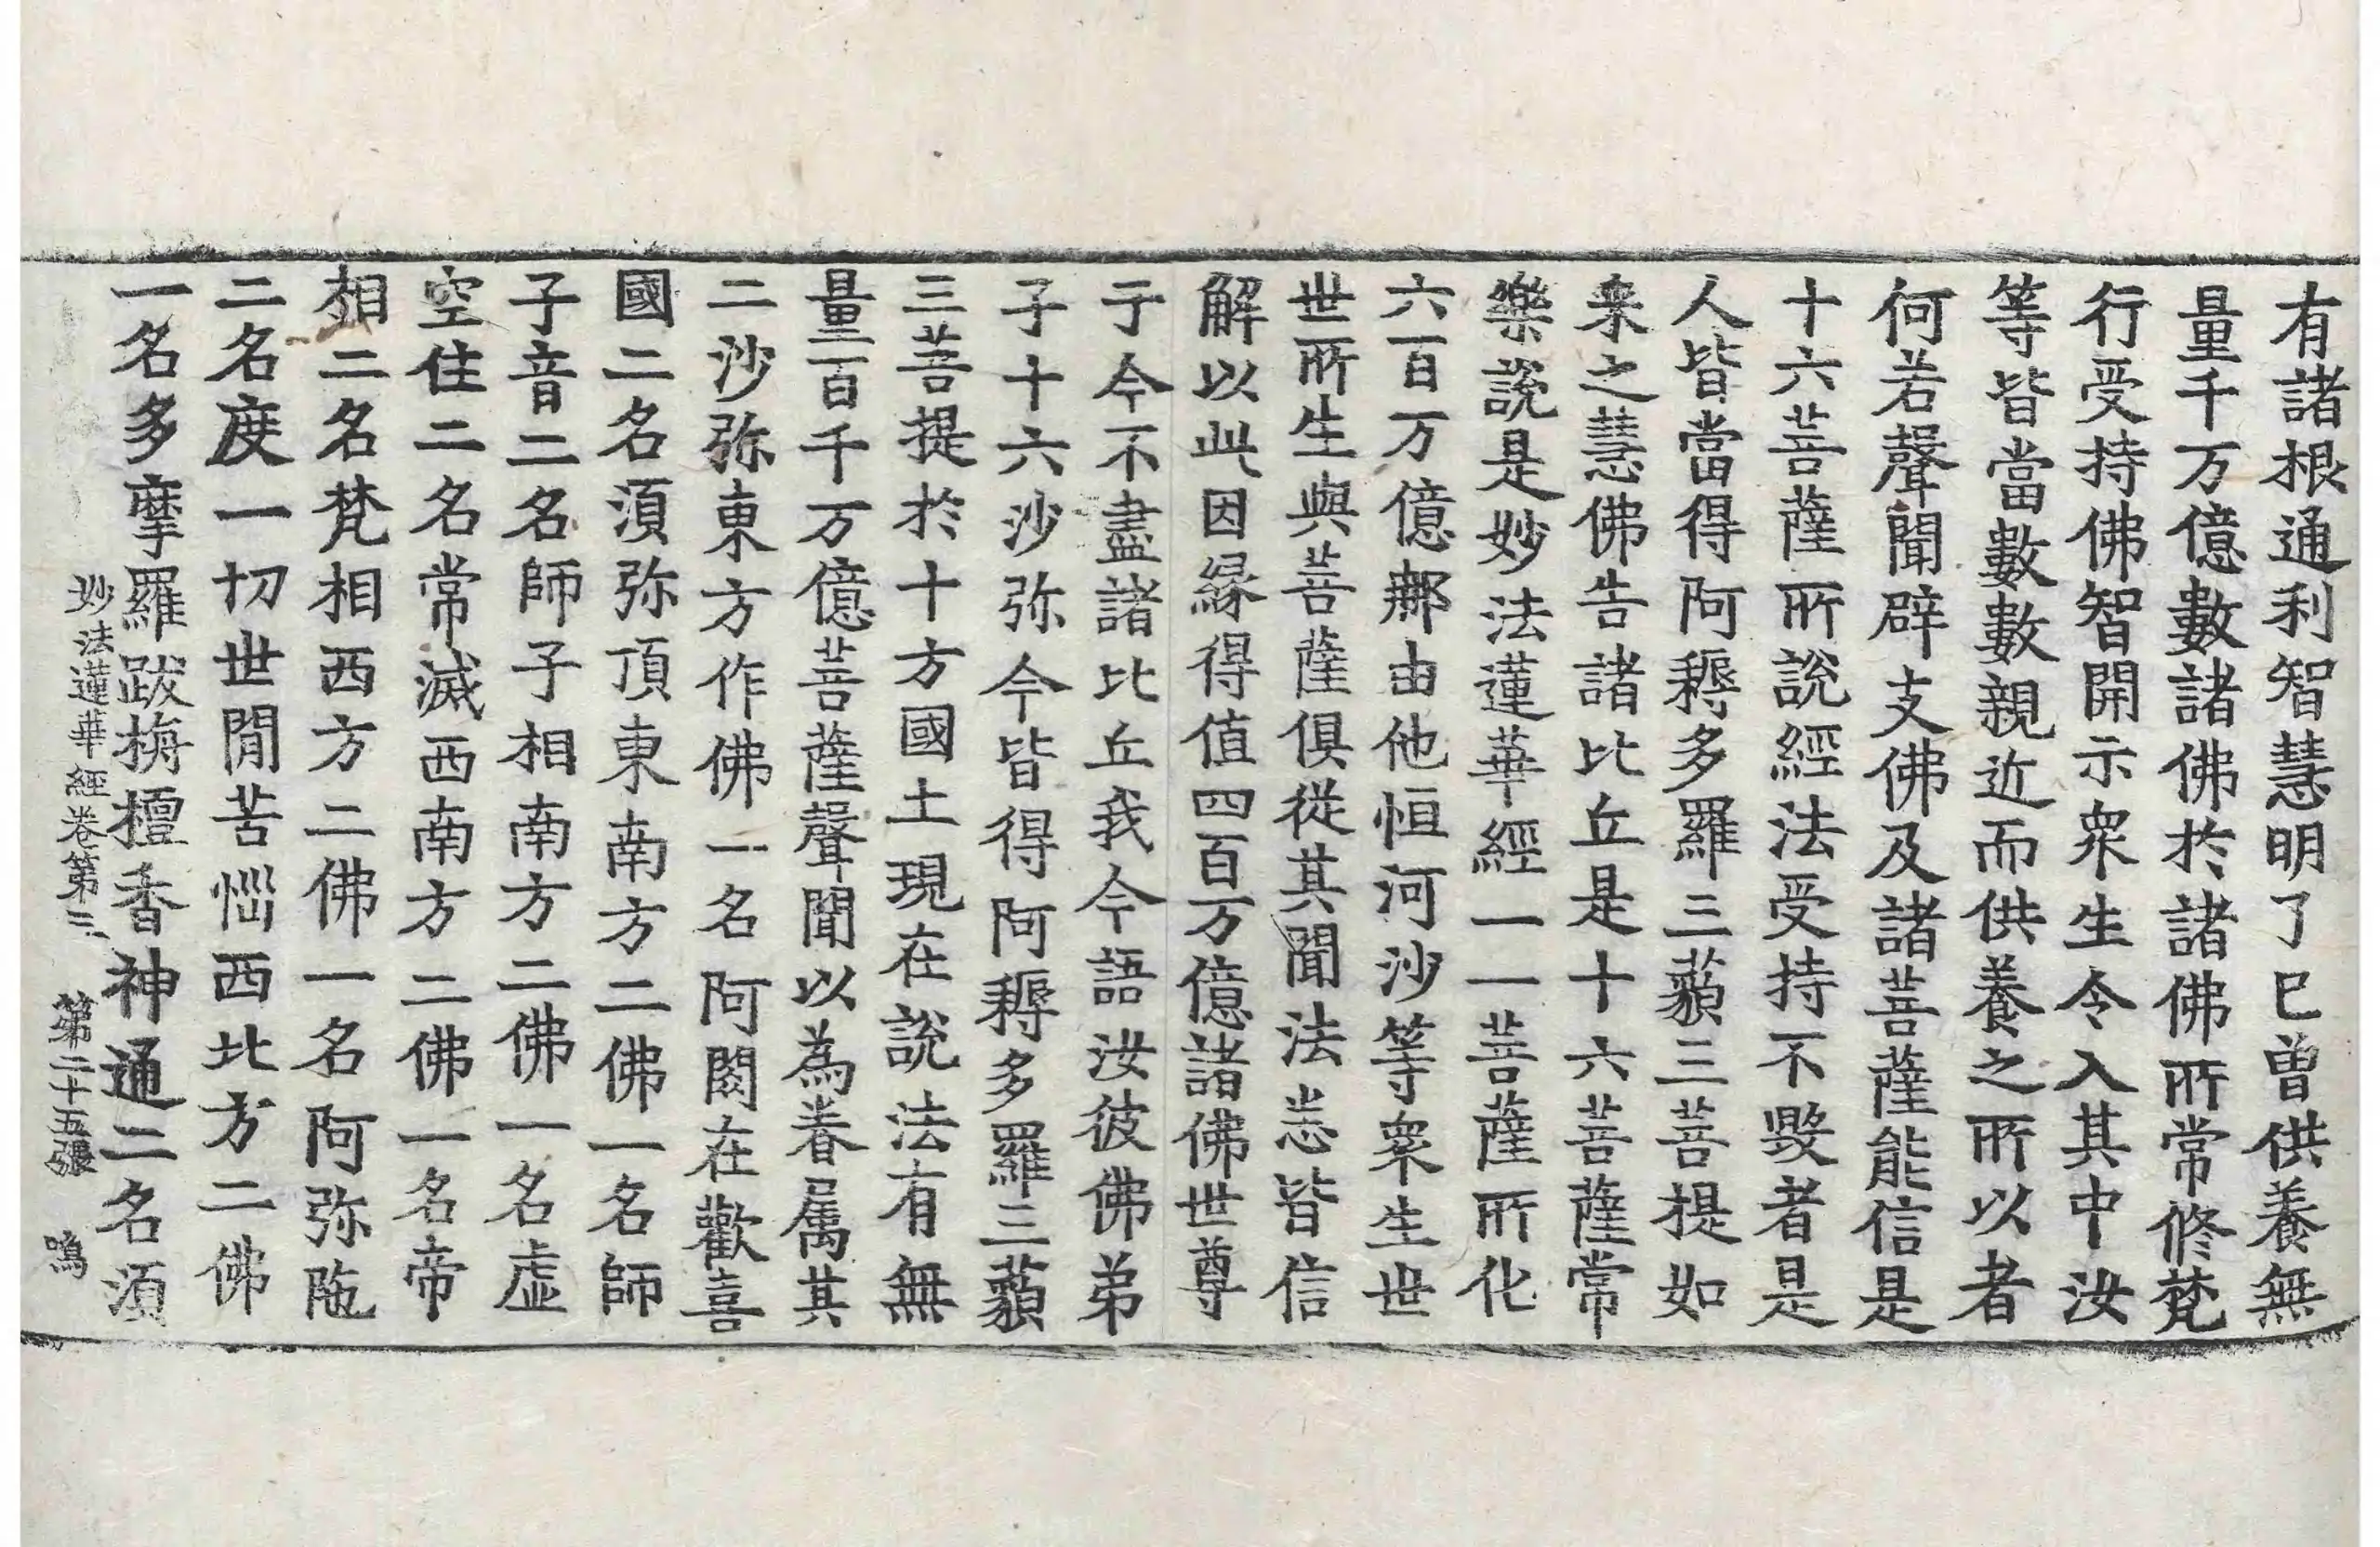 有諸根通利智慧明了已曾供養無
量千万億數諸佛於諸佛所常修梵
行受持佛智開示衆生令入其中汝
等皆當數數親近而供養之所以者
何若聲聞辟支佛及諸菩薩能信是
十六菩薩所說經法受持不毀者是
人皆當得阿耨多羅三藐三菩提如
来之慧佛告諸比丘是十六菩薩常
樂說是妙法蓮華經一一菩薩所化
六百万億那由他恒河沙等衆生世
世所生與菩薩俱從其聞法悉皆信
解以此因緣得值四百万億諸佛世尊
于今不盡諸比丘我今語汝彼佛弟
子十六沙弥今皆得阿耨多羅三藐
三菩提於十方國土現在說法有無
量百千万億菩薩聲聞以為眷属其
二沙弥東方作佛一名阿閦在歡喜
國二名須弥頂東南方二佛一名師
子音二名師子相南方二佛一名虚
空住二名常滅西南方二佛一名帝
相二名梵相西方二佛一名阿弥陁
二名度一切世間苦惱西北方二佛
一名多摩羅跋栴檀香神通二名須
妙法蓮華經卷第三 第二十五張 鳴